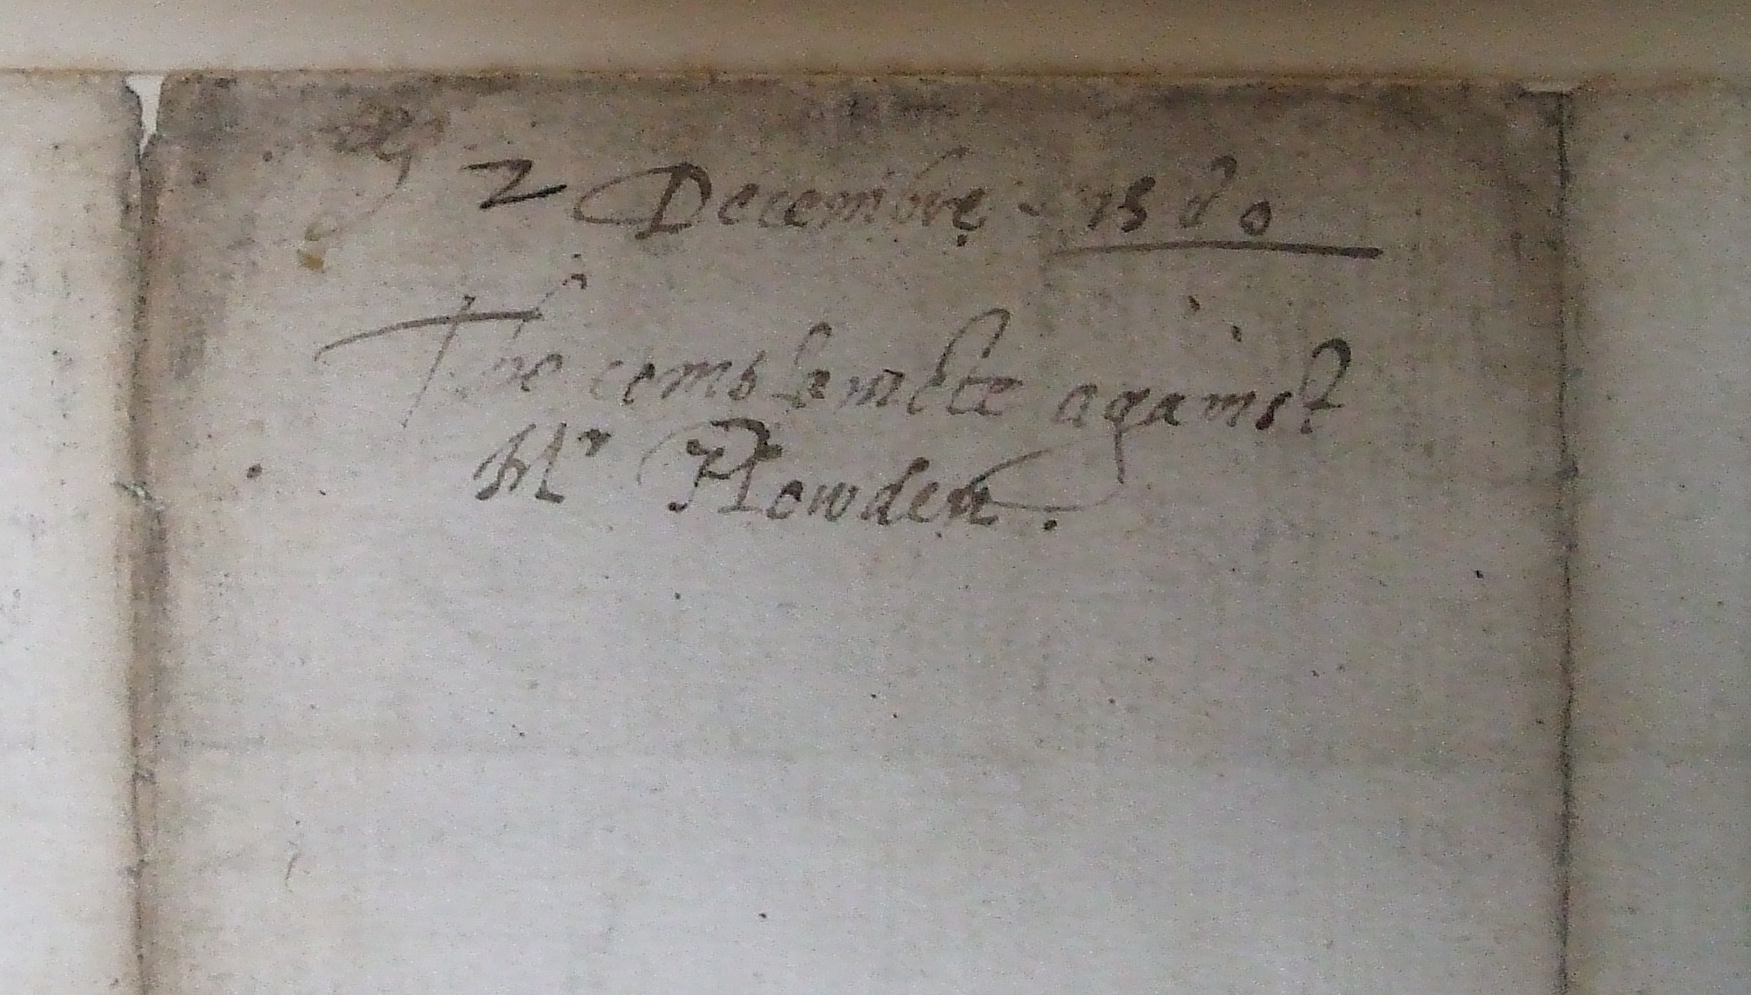 2 Decembre - 1580
The compleincte against
Mr Plowden.